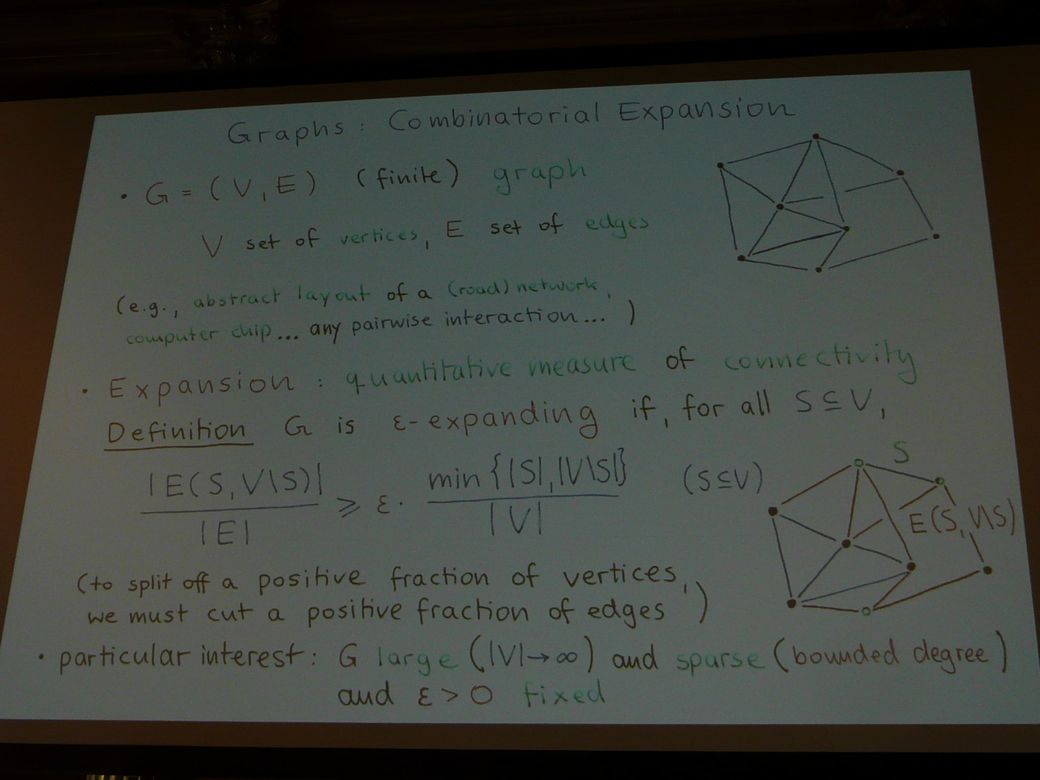 Graphs: Combinatorial Expansion
• G = (V, E) (finite) graph
V set of vertices, E set of edges
(e.g., abstract layout of a (road) network,
computer chip... any pairwise interaction... )
• Expansion: quantitative measure of connectivity
Definition G is ε-expanding if, for all S ⊆ V,
|E(S, V\S)| / |E| ⩾ ε · min {|S|, |V\S|} / |V| (S ⊆ V)
S
E(S, V\S)
(to split off a positive fraction of vertices,
we must cut a positive fraction of edges)
• particular interest: G large (|V| → ∞) and sparse (bounded degree)
and ε > 0 fixed